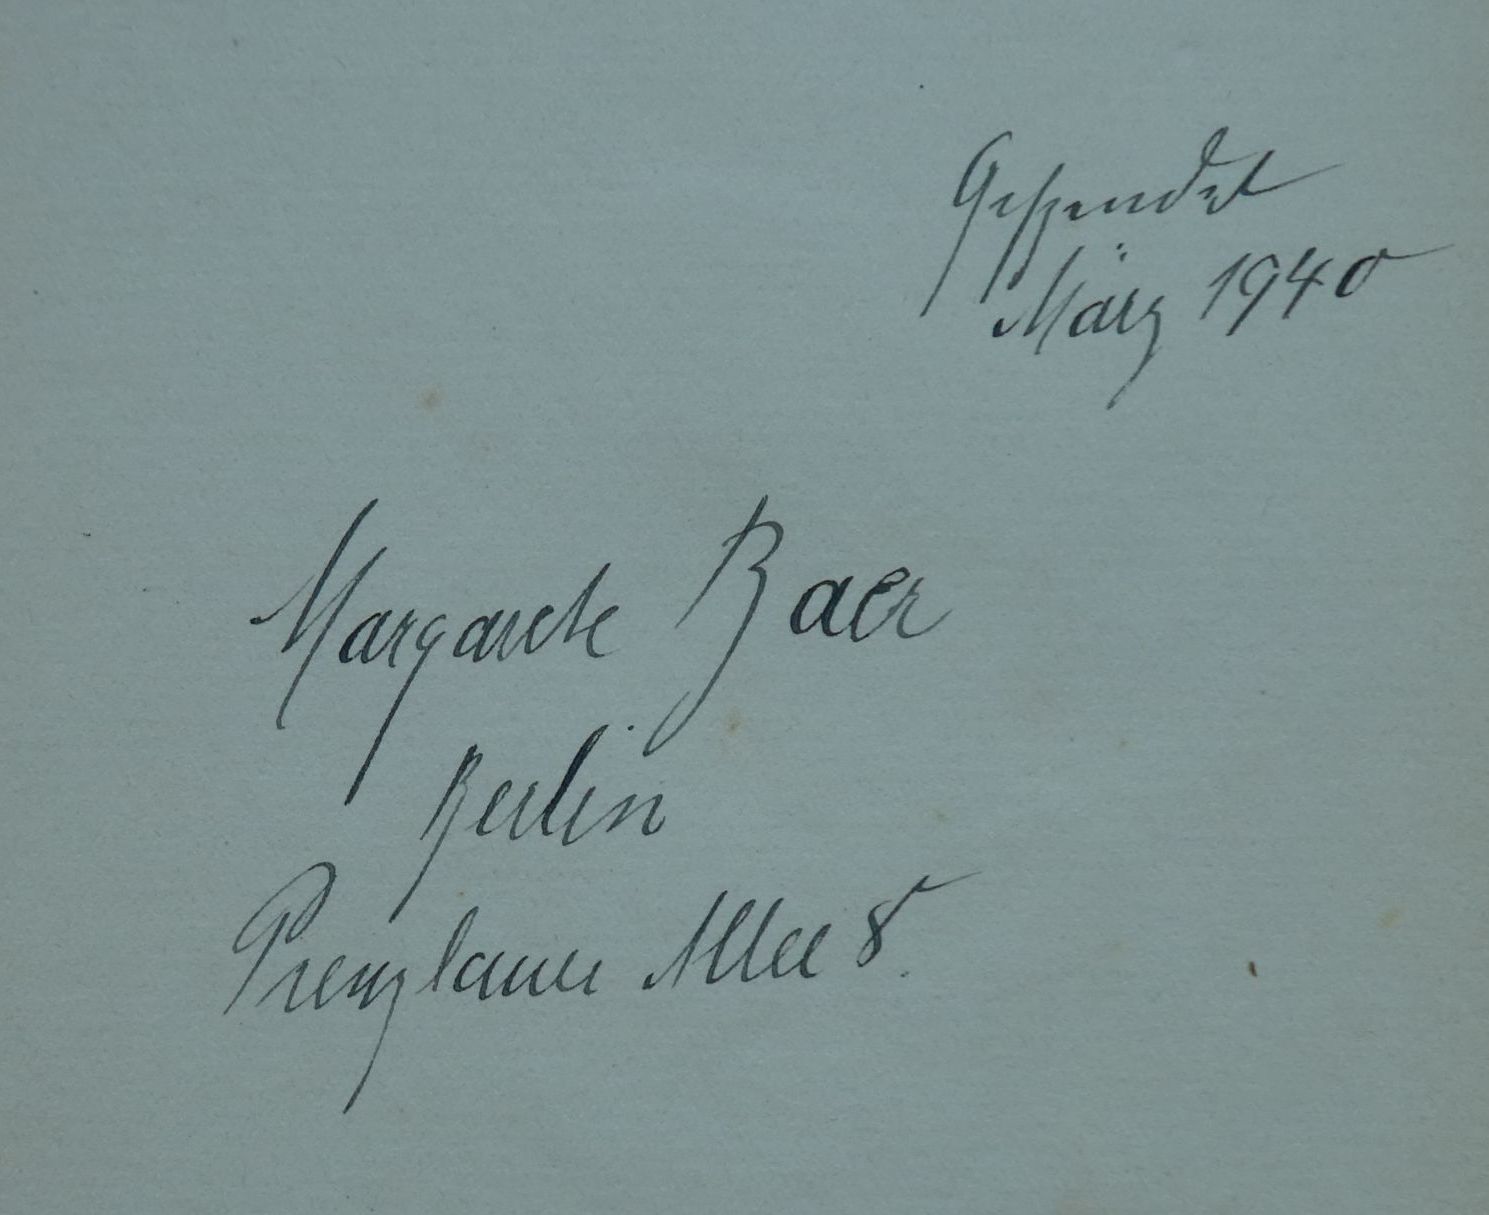 Gespendet
März 1940
Margarete Baer
Berlin
Prenzlauer Allee 8.